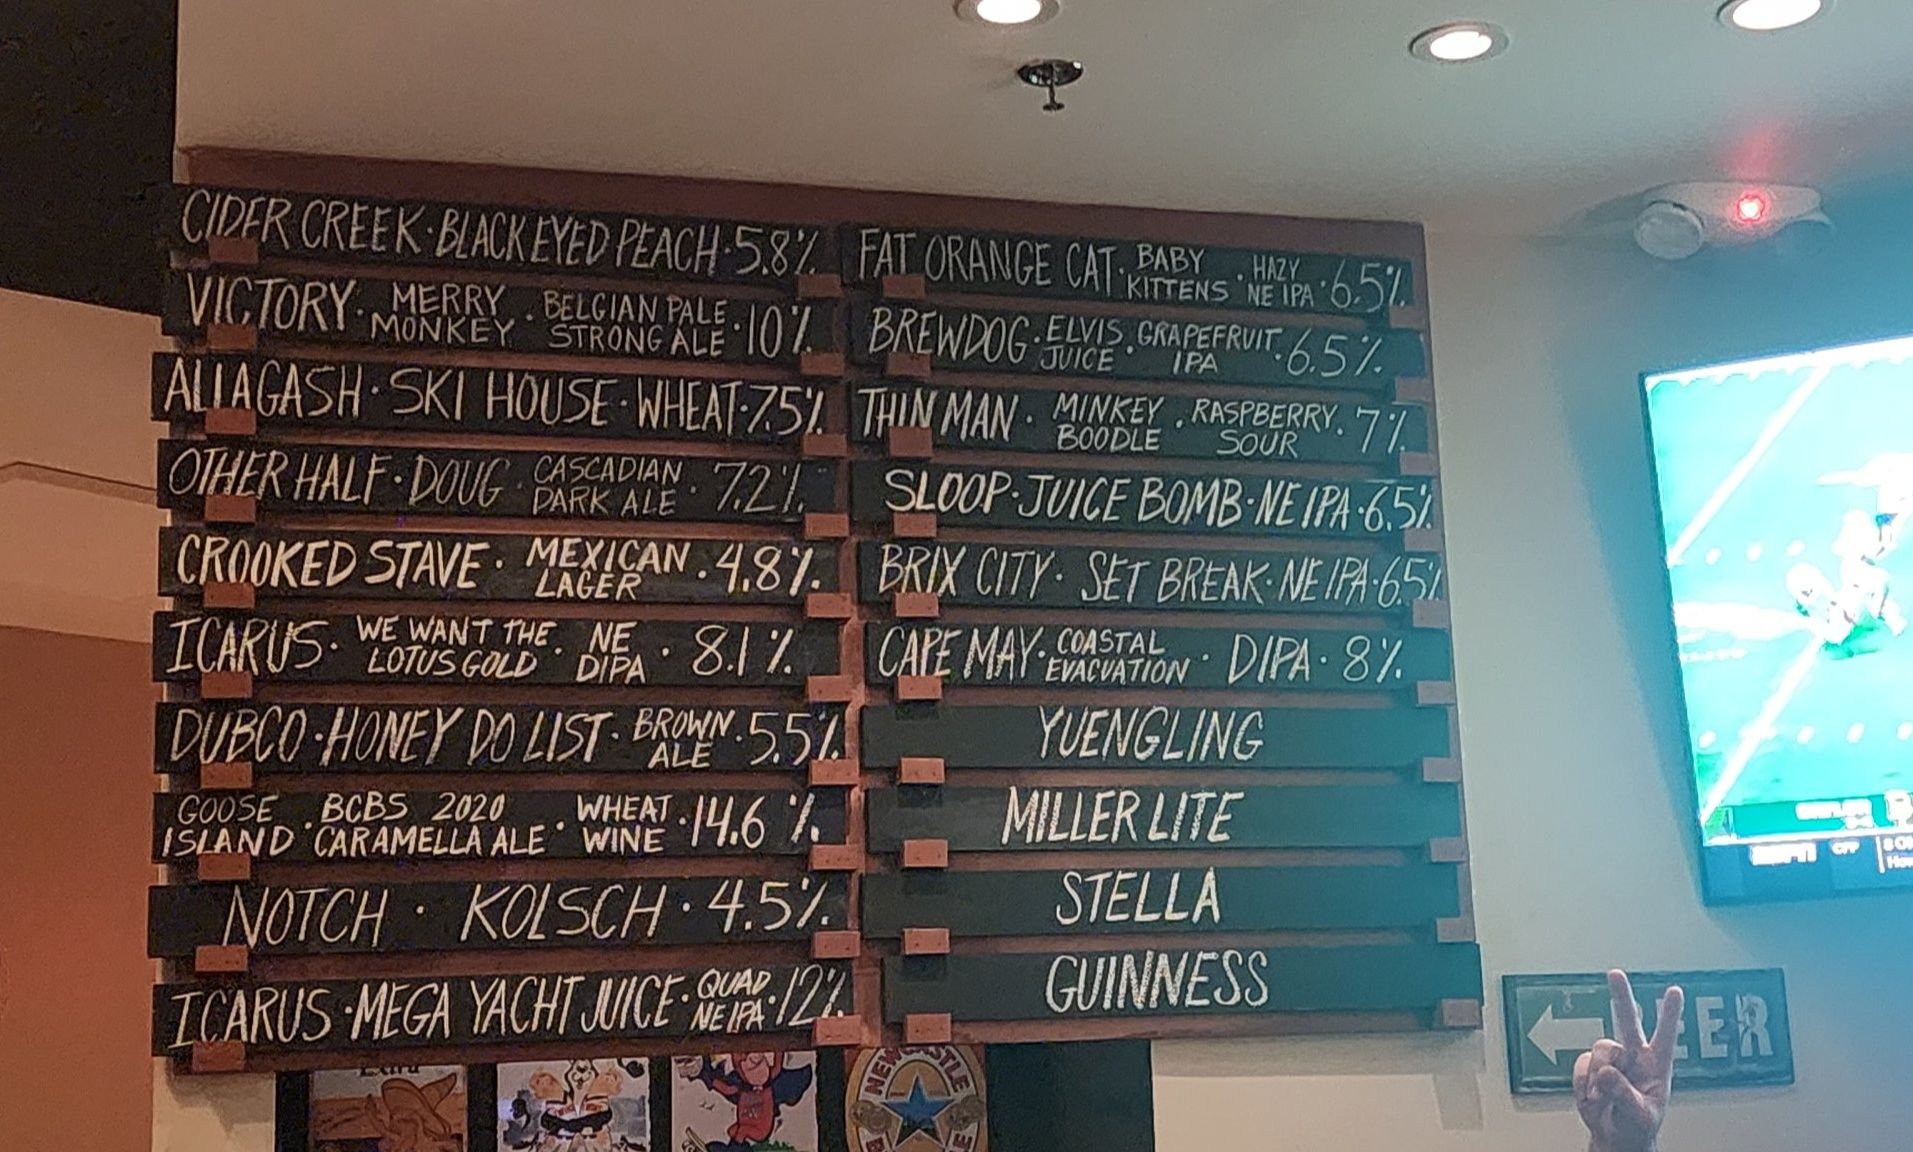 CIDER CREEK · BLACK EYED PEACH · 5.8%
VICTORY · MERRY MONKEY · BELGIAN PALE STRONG ALE · 10%
ALLAGASH · SKI HOUSE · WHEAT · 7.5%
OTHER HALF · DOUG · CASCADIAN DARK ALE · 7.2%
CROOKED STAVE · MEXICAN LAGER · 4.8%
ICARUS · WE WANT THE LOTUS GOLD · NE DIPA · 8.1%
DUBCO · HONEY DO LIST · BROWN ALE · 5.5%
GOOSE ISLAND · BCBS 2020 CARAMELLA ALE · WHEAT WINE · 14.6%
NOTCH · KOLSCH · 4.5%
ICARUS · MEGA YACHT JUICE · QUAD NE IPA · 12%
FAT ORANGE CAT · BABY KITTENS · HAZY NE IPA · 6.5%
BREWDOG · ELVIS JUICE · GRAPEFRUIT IPA · 6.5%
THIN MAN · MINKEY BOODLE · RASPBERRY SOUR · 7%
SLOOP · JUICE BOMB · NE IPA · 6.5%
BRIX CITY · SET BREAK · NE IPA · 6.5%
CAPE MAY · COASTAL EVACUATION · DIPA · 8%
YUENGLING
MILLER LITE
STELLA
GUINNESS
NEWCASTLE